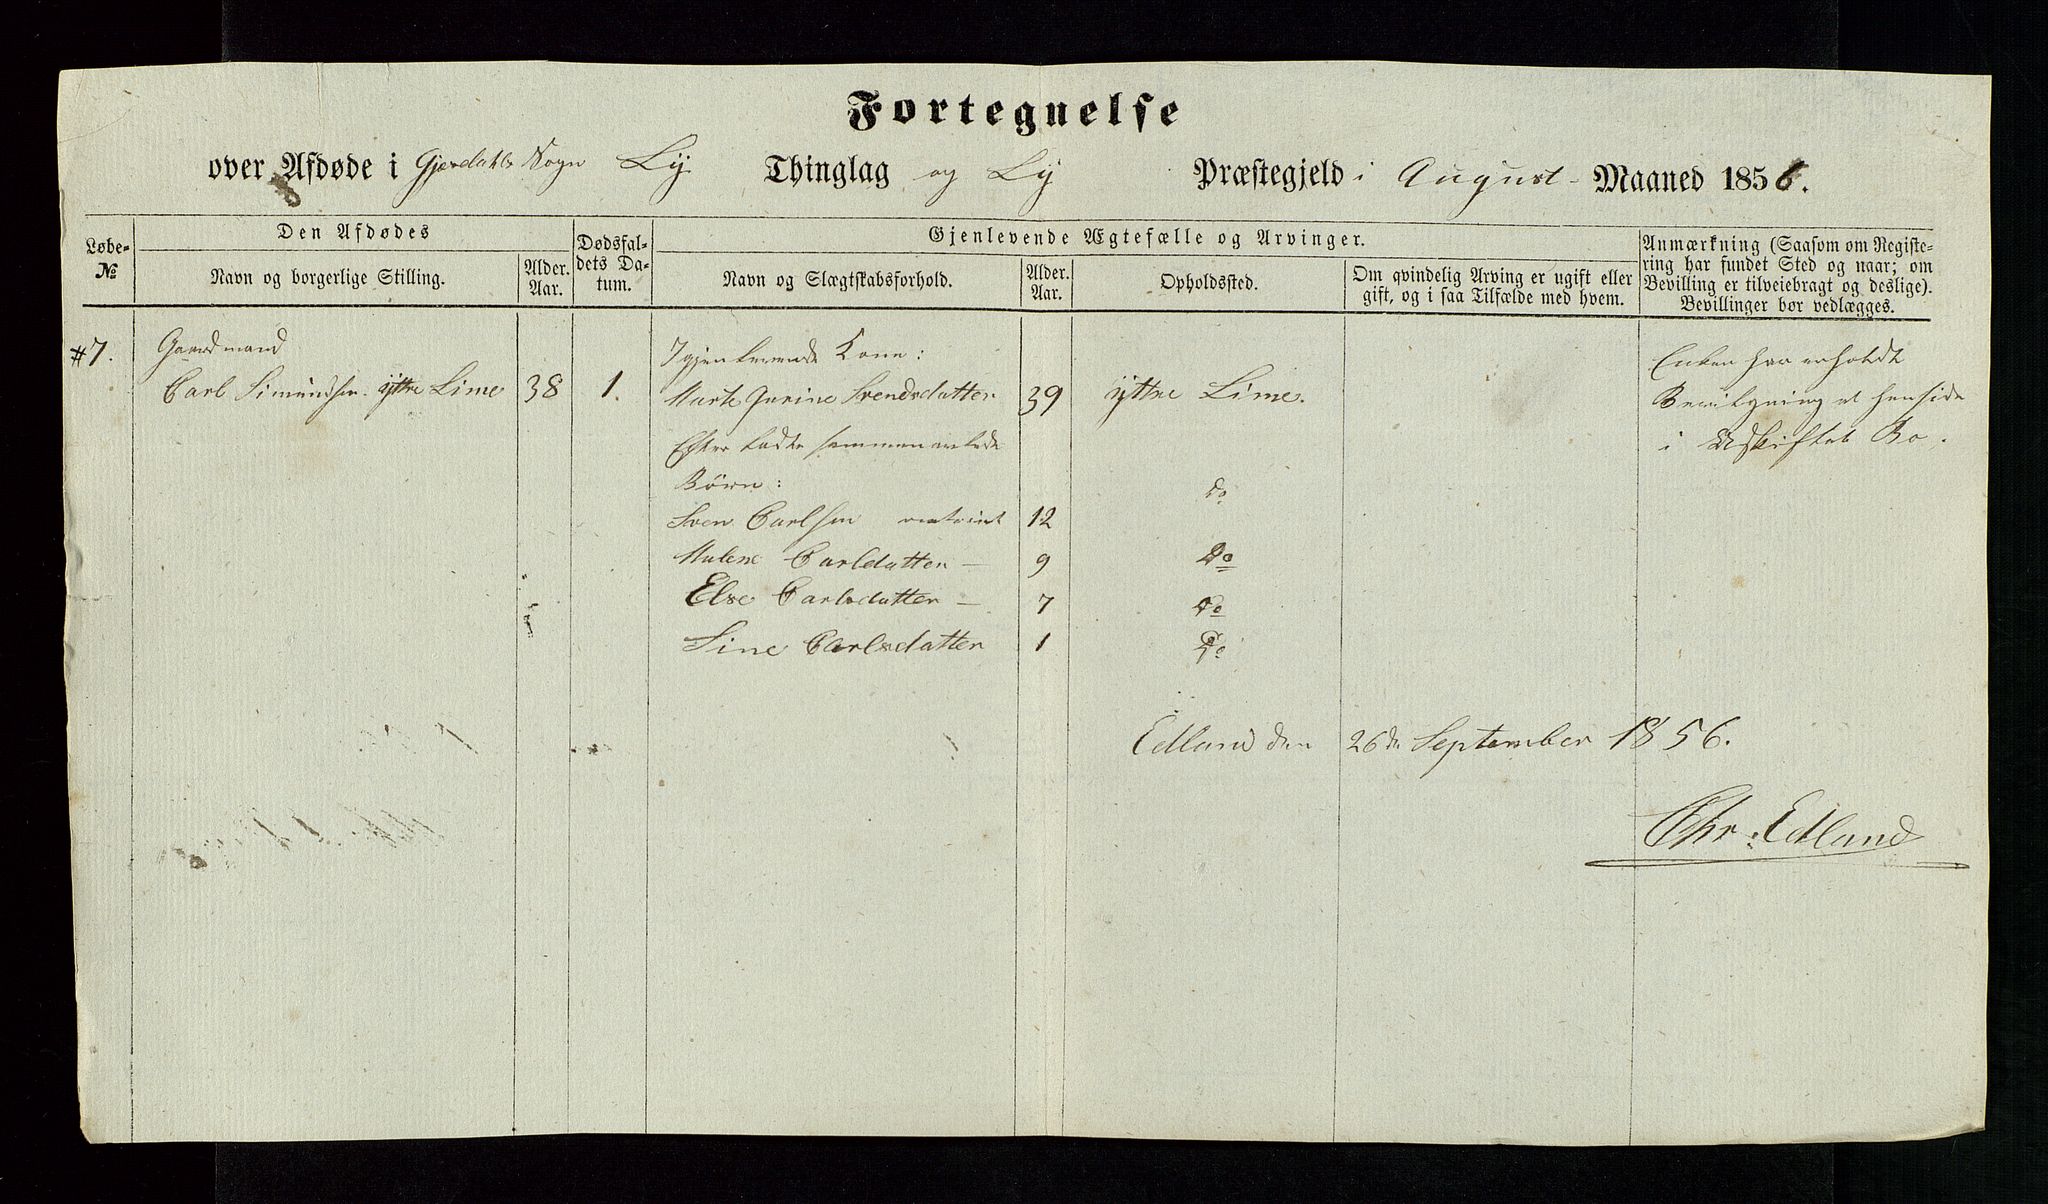 Fortegnelse
over Afdøde i Gjesdahls Sogn Ly Thinglag og Ly Præstegjeld i August Maaned 1856.
Løbe-
No
Den Afdødes
Navn og borgerlige Stilling.
Alder.
Aar.
Dødsfal-
dets Da-
tum.
Gjenlevende Ægtefælle og Arvinger.
Navn og Slægtskabsforhold.
Alder.
Aar.
Opholdssted.
Om qvindelig Arving er ugift eller
gift, og i saa Tilfælde med hvem.
Anmærkning (Saasom om Registe-
ring har fundet Sted og naar; om
Bevilling er tilveiebragt og deslige).
Bevillinger bør vedlægges.
# 7.
Gaardmand
Carl Simundsen yttre Lime
38
1.
Igjenlevende Kone:
Marte Gurine Svendsdatter 39 yttre Lime.
Efterladte sammenavlede
Børn:
Sven Carlsen 12 do
Malene Carlsdatter – 9 Do
Else Carlsdatter – 7 Do
Sine Carlsdatter 1 Do
Enken har erholdt
Bevilgning at hensidde
i Uskiftet Bo.
Edland den 26de September 1856.
Chr. Edland